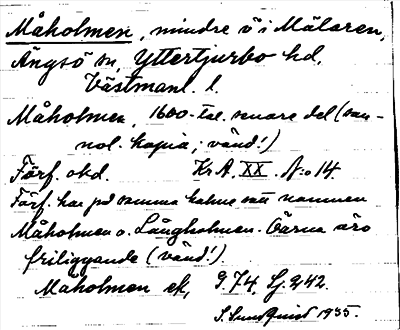 Måholmen, mindre ö i Mälaren,
Ängsö sn, Yttertjurbo hd,
Västmanl. l.
Måholmen, 1600-tal. senare del (san-
nol. kopia; vänd!)
Förf. okd. Kr.A. XX. N:o 14
Förf. har på samma holme satt namnen
Måholmen o. Långholmen. Öarna äro
friliggande (vänd!)
Måholmen ek, 9.74. G.242.
S. Sundquist 1935.